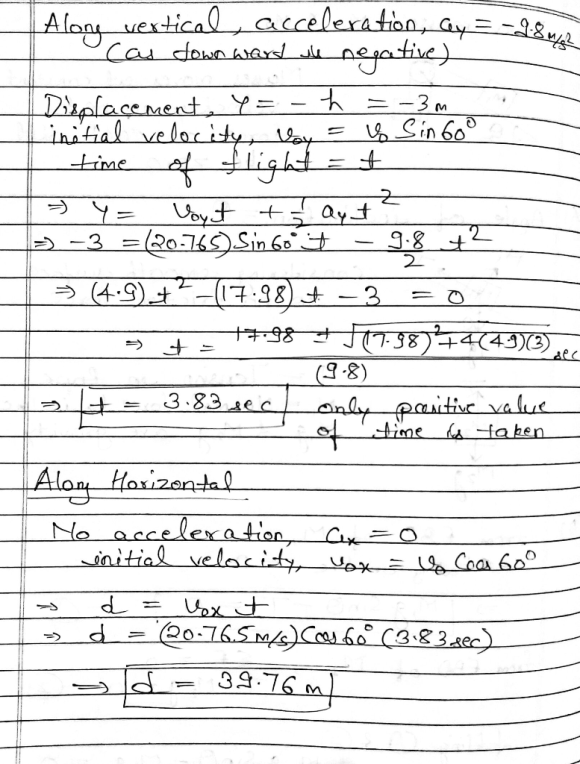 Along vertical, acceleration, ay = -9.8 m/s²
(as downward is negative)
Displacement, Y = - h = -3m
initial velocity, voy = v₀ Sin60°
time of flight = t
⇒ Y = voyt + 1/2 ayt²
⇒ -3 = (20.765) Sin60° t - 9.8/2 t²
⇒ (4.9)t² - (17.98)t - 3 = 0
⇒ t = 17.98 ± √(17.98)² + 4(4.9)(3) / (9.8) sec
⇒ t = 3.83 sec only positive value
of time is taken
Along Horizontal
No acceleration, ax = 0
initial velocity, vox = v₀ Cos60°
⇒ d = vox t
⇒ d = (20.765 m/s) Cos60° (3.83 sec)
⇒ d = 39.76 m